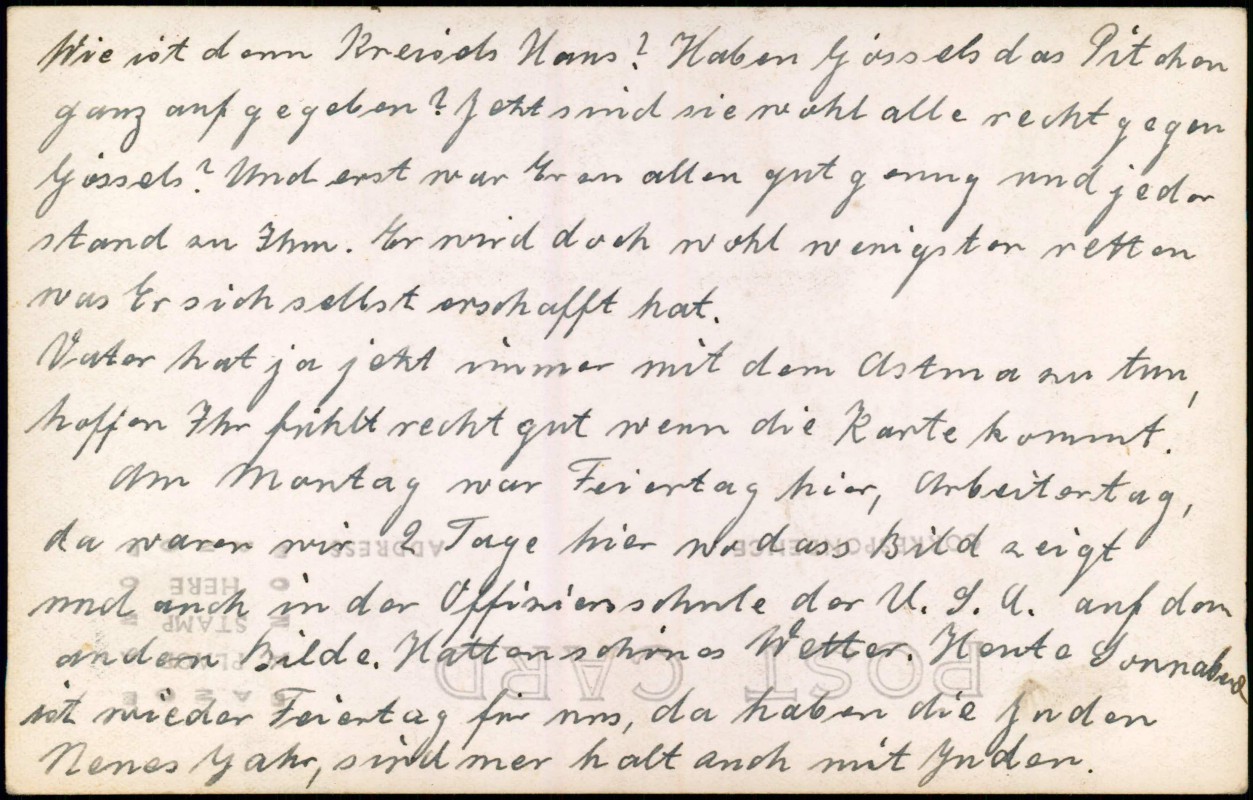 Wie ist denn Kreisels Hans? Haben Gössels das Pitchen
ganz aufgegeben? Jetzt sind sie wohl alle recht gegen
Gössels? Und erst war Er an allen gut genug und jeder
stand zu Ihm. Er wird doch wohl wenigsten retten
was Er sich selbst erschafft hat.
Vater hat ja jetzt immer mit dem Astma zu tun,
hoffen Ihr fühlt recht gut wenn die Karte kommt.
Am Montag war Feiertag hier, Arbeitertag,
da waren wir 2 Tage hier wo dass Bild zeigt
und auch in der Offiziersschule der U. S. A. auf dem
andern Bilde. Hatten schönes Wetter. Heute Sonnabend
ist wieder Feiertag für uns, da haben die Juden
Neues Jahr, sind mer halt auch mit Juden.
CORRESPONDENCE
ADDRESS
POST CARD
PLACE
STAMP
HERE